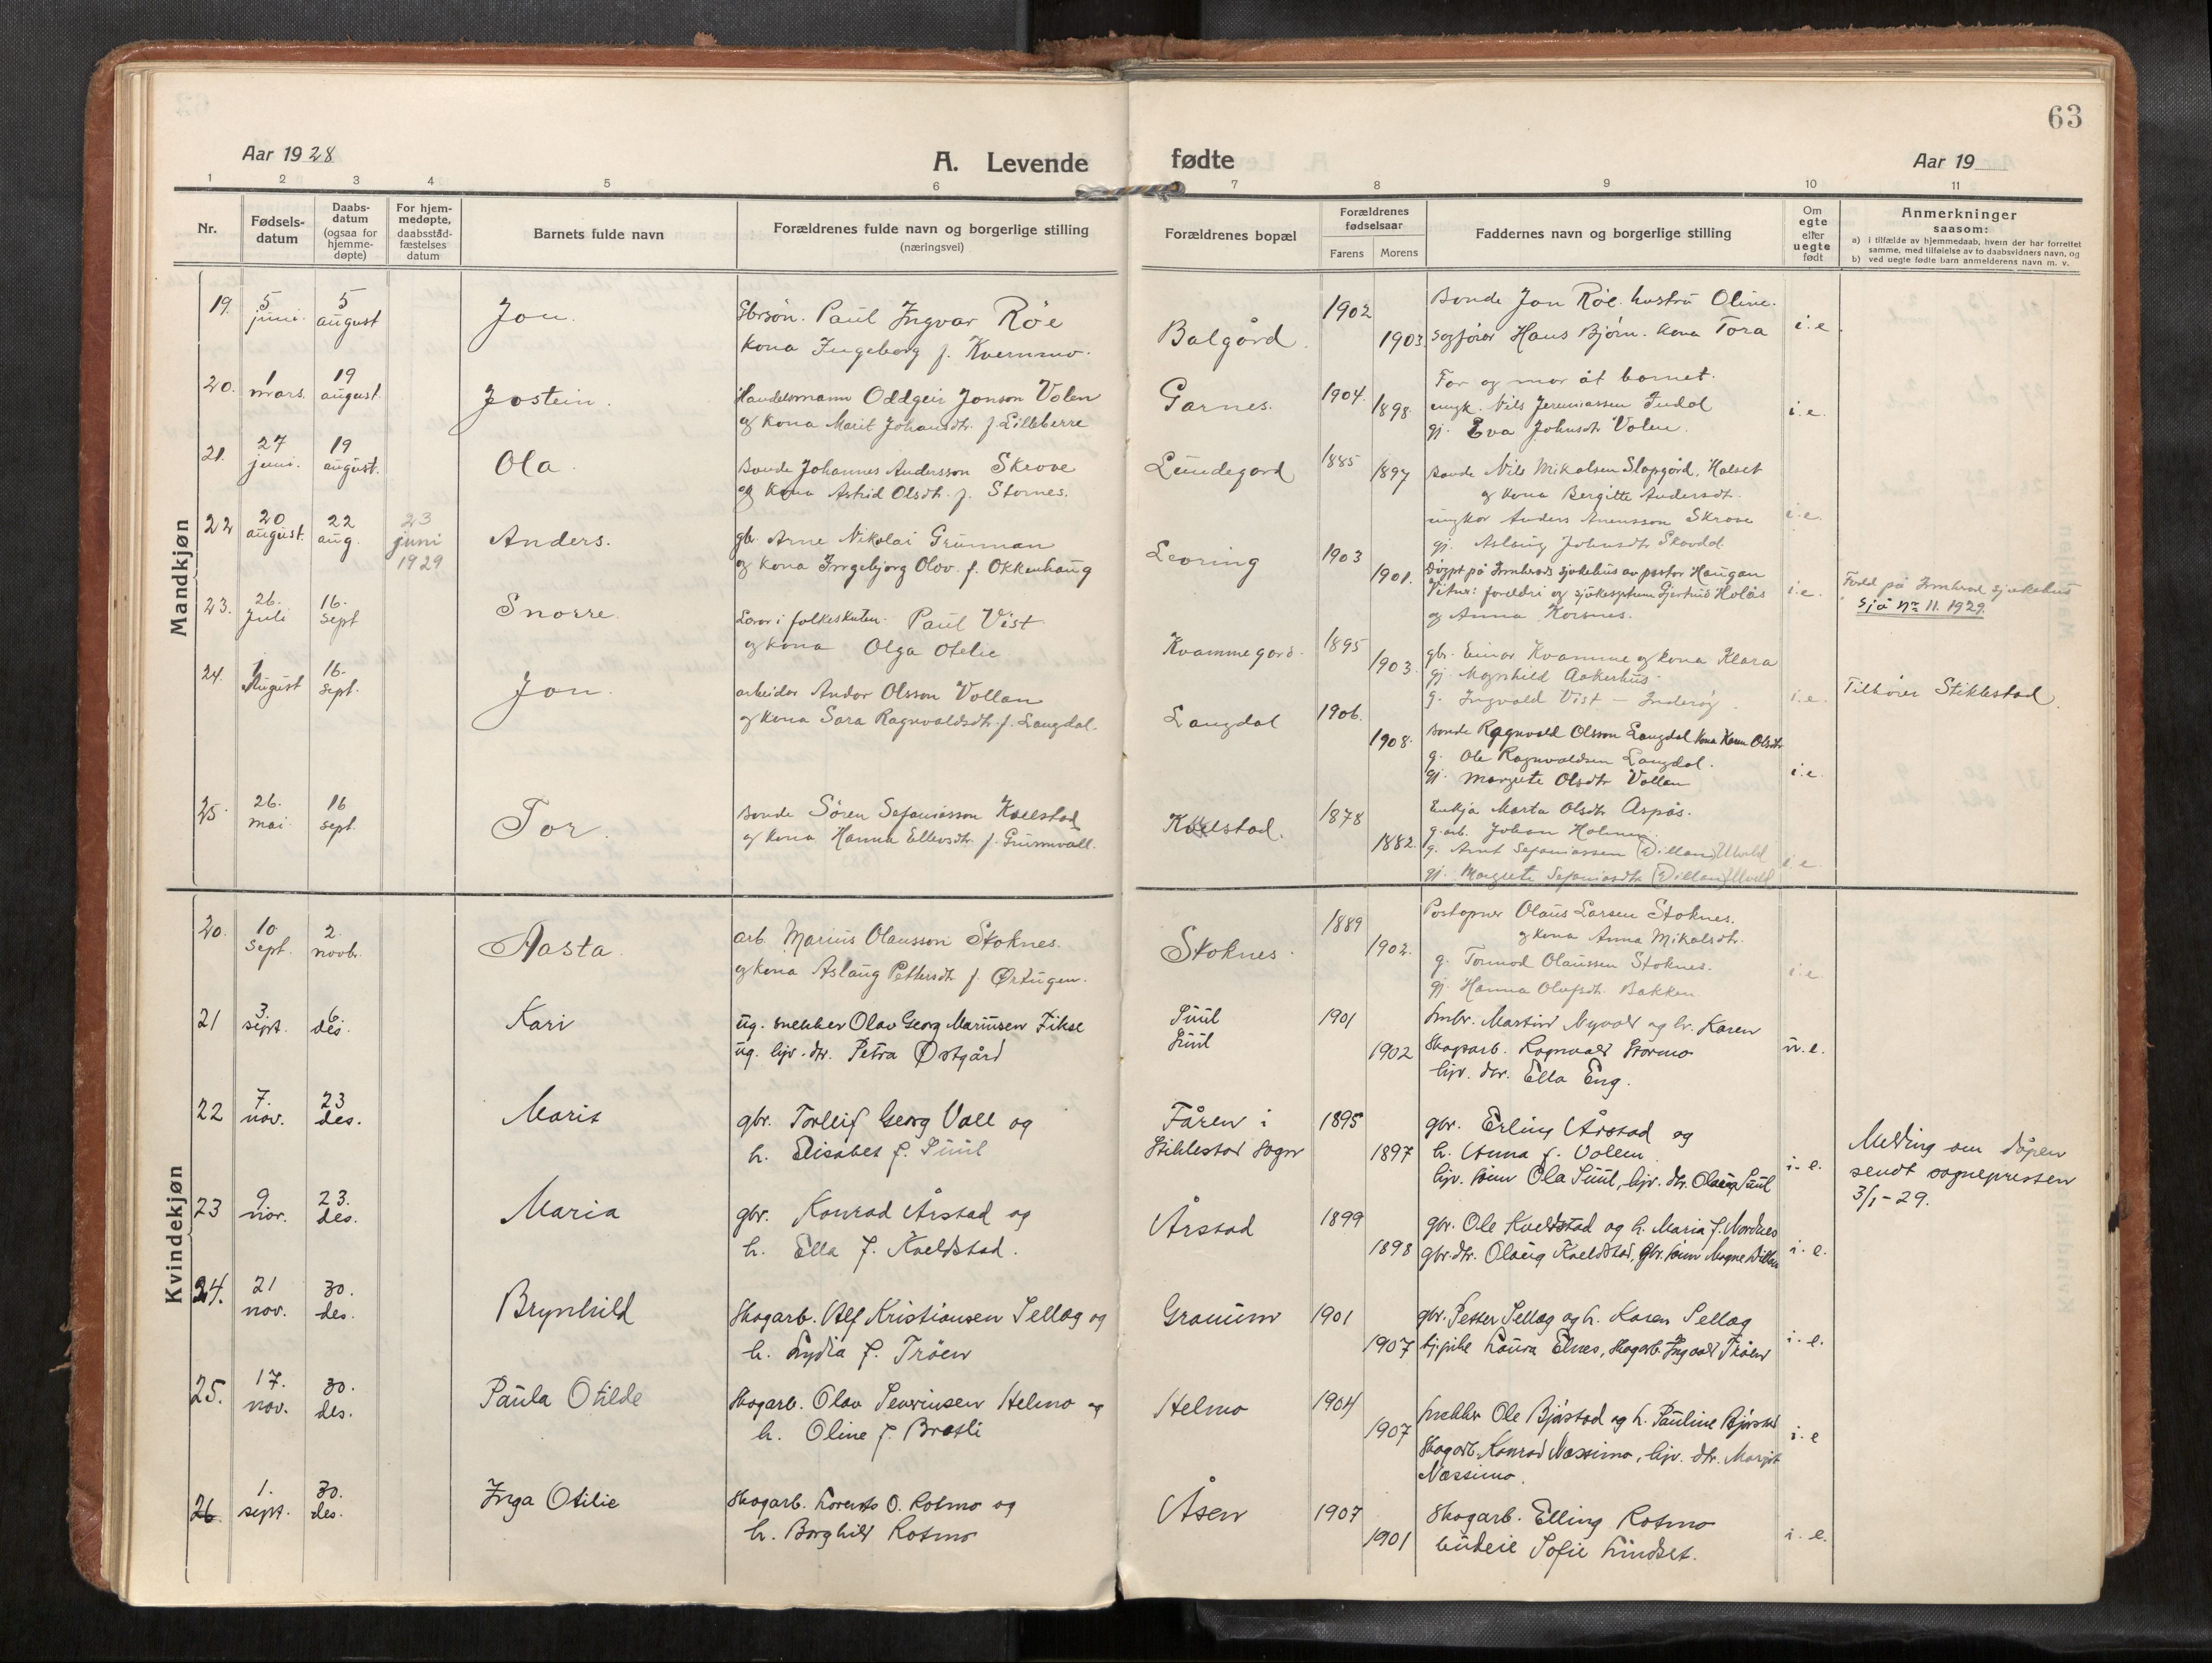 63
Aar 1928
A. Levende fødte
Aar 19
1 2 3 4 5 6 7 8 9 10 11
Nr.
Fødsels-
datum
Daabs-
datum
(ogsaa for
hjemme-
døpte)
For hjem-
medøpte,
daabsstad-
fæstelses
datum
Barnets fulde navn
Forældrenes fulde navn og borgerlige stilling
(næringsvei)
Forældrenes bopæl
Forældrenes
fødselsaar
Farens Morens
Faddernes navn og borgerlige stilling
Om
egte
eller
uegte
født
Anmerkninger
saasom:
a) i tilfælde av hjemmedaab, hvem der har forrettet
samme, med tilføielse av to daabsvidners navn, og
b) ved uegte fødte barn anmelderens navn m. v.
Mandkjøn
19. 5 juni. 5 august
Jon.
Gbrsøn. Paul Ingvar Röe
kona Ingeborg f. Kvernmo.
Balgård.
1902
1903.
Bonde Jon Röe. hustru Oline.
Sogfører Hans Bjørn. kona Tora
i. e.
20. 1 mars. 19 august.
Jostein.
Handelsmann Oddgeir Jonson Volen
og kona Marit Johansdtr. f. Lilleberre
Garnes.
1904.
1898.
Far og mor åt barnet.
ungk. Nils Jeremiassen Indal
gj. Eva Johnsdtr Volen.
i. e.
21. 27 juni. 19 august.
Ola.
Bonde Johannes Andersson Skrove
og kona Astrid Olsdtr. f. Stornes.
Lundegard
1885
1897
Bonde Nils Mikalsen Slapgård, Halset
og kona Bergitte Andersdtr.
ungkar Anders Arnesson Skrove
gj. Aslaug Johnsdtr Skavdal
i. e.
22 20 august. 22 aug. 23 juni 1929
Anders.
gbr. Arne Nikolai Grunnan
og kona Ingebjørg Olov. f. Okkenhaug
Levring
1903
1901.
Døypt på Innherads sjukehus av pastor Haugan
Vitner: foreldri og sjukesystrene Gjertrud Holås
og Anna Korsnes.
i. e.
Født på Innherad sjukehus
Sjå nr. 11. 1929.
23. 26. Juli 16. Sept
Snorre.
Lærar i folkeskulen. Paul Vist
og kona Olga Otelie
Kvammegard.
1895
1903.
gbr. Einar Kvamme og kona Klara
gj. Magnhild Aakerhus
g. Ingvald Vist — Inderøy.
i. e.
Tilhører Stiklestad.
24. 1 August 16. Sept.
Jon.
arbeider Andor Olsson Vollan
og kona Sara Ragnvaldsdtr. f. Langdal.
Langdal
1906.
1908.
Bonde Ragnvald Olsson Langdal kona Karen Olsdtr
g. Ole Ragnvaldsen Langdal.
gj. Margrete Olsdtr Vollan
i. e.
25. 26. mai 16 sept.
Tor.
Bonde Søren Sefaniasson Kvelstad
og kona Hanna Ellevsdtr. f. Grunnvall.
Kvelstad.
1878
1882.
Enkja Marta Olsdtr Aspås.
g. arb. Johan Holmen.
g. Arnt Sefaniassen (Dillan) Ulvild
gj. Margrete Sefaniasdtr (Dillan) Ulvild
i. e.
Kvindekjøn
20. 10. Sept. 2. novbr.
Aasta.
arb. Marius Olausson Stoknes.
og kona Aslaug Pettersdtr f. Ørtugen.
Stoknes.
1889
1902.
Postopner Olaus Larsen Stoknes.
og kona Anna Mikalsdtr.
g. Tormod Olaussen Stoknes.
gj. Hanna Olufsdtr. Bakken.
i. e.
21 3. sept. 6. des.
Kari
ug. snekker Olav Georg Mariusen Fikse
ug. hjv. dtr. Petra Østgård
Suul
Suul
1901
1902
Smbr. Martin Nyvold og h. Karen
Skogarb. Ragnvald Stormo
hjv. dtr. Ella Eng.
u. e.
22 7. nov. 23 des.
Marit
gbr. Torleif Georg Vall og
h. Elisabet f. Suul
Fåren i
Stiklestad Sogn
1895
1897
gbr. Erling Årstad og
h. Anna f. Vollen
hjv. sønn Ola Suul, hjv. dtr. Olaug Suul
i. e.
Melding om dåpen
sendt sognepresten
3/1-29.
23 9 nov. 23. des.
Maria
gbr. Konrad Årstad og
h. Ella f. Kveldstad.
Årstad
1899
1898
gbr. Ole Kveldstad og h. Maria f. Nordnes
gbr. dtr. Olaug Kveldstad, gbr. sønn Magne Dillan
i. e.
24. 21 nov. 30. des.
Brynhild
Skogarb. Alf Kristiansen Sellæg og
h. Lydia f. Trøen
Granum
1901
1907
gbr. Petter Sellæg og h. Karen Sellæg
tj. pike Laura Elnes, Skogarb. Ingvald Trøen
i. e.
25. 17. nov. 30. des.
Paula Otilde
Skogarb. Olav Sevrinsen Helmo og
h. Oline f. Bratli
Helmo
1904
1907
snekker Ole Bjåstad og h. Pauline Bjåstad
Skogarb. Konrad Næssimo, hjv. dtr. Margit
Næssimo.
i. e
26. 1. sept. 30. des.
Inga Otilie
Skogarb. Lorents O. Rotmo og
h. Borghild Rotmo
Åsen
1907
1901
Skogarb. Elling Rotmo
budeie Sofie Lindset.
i. e.